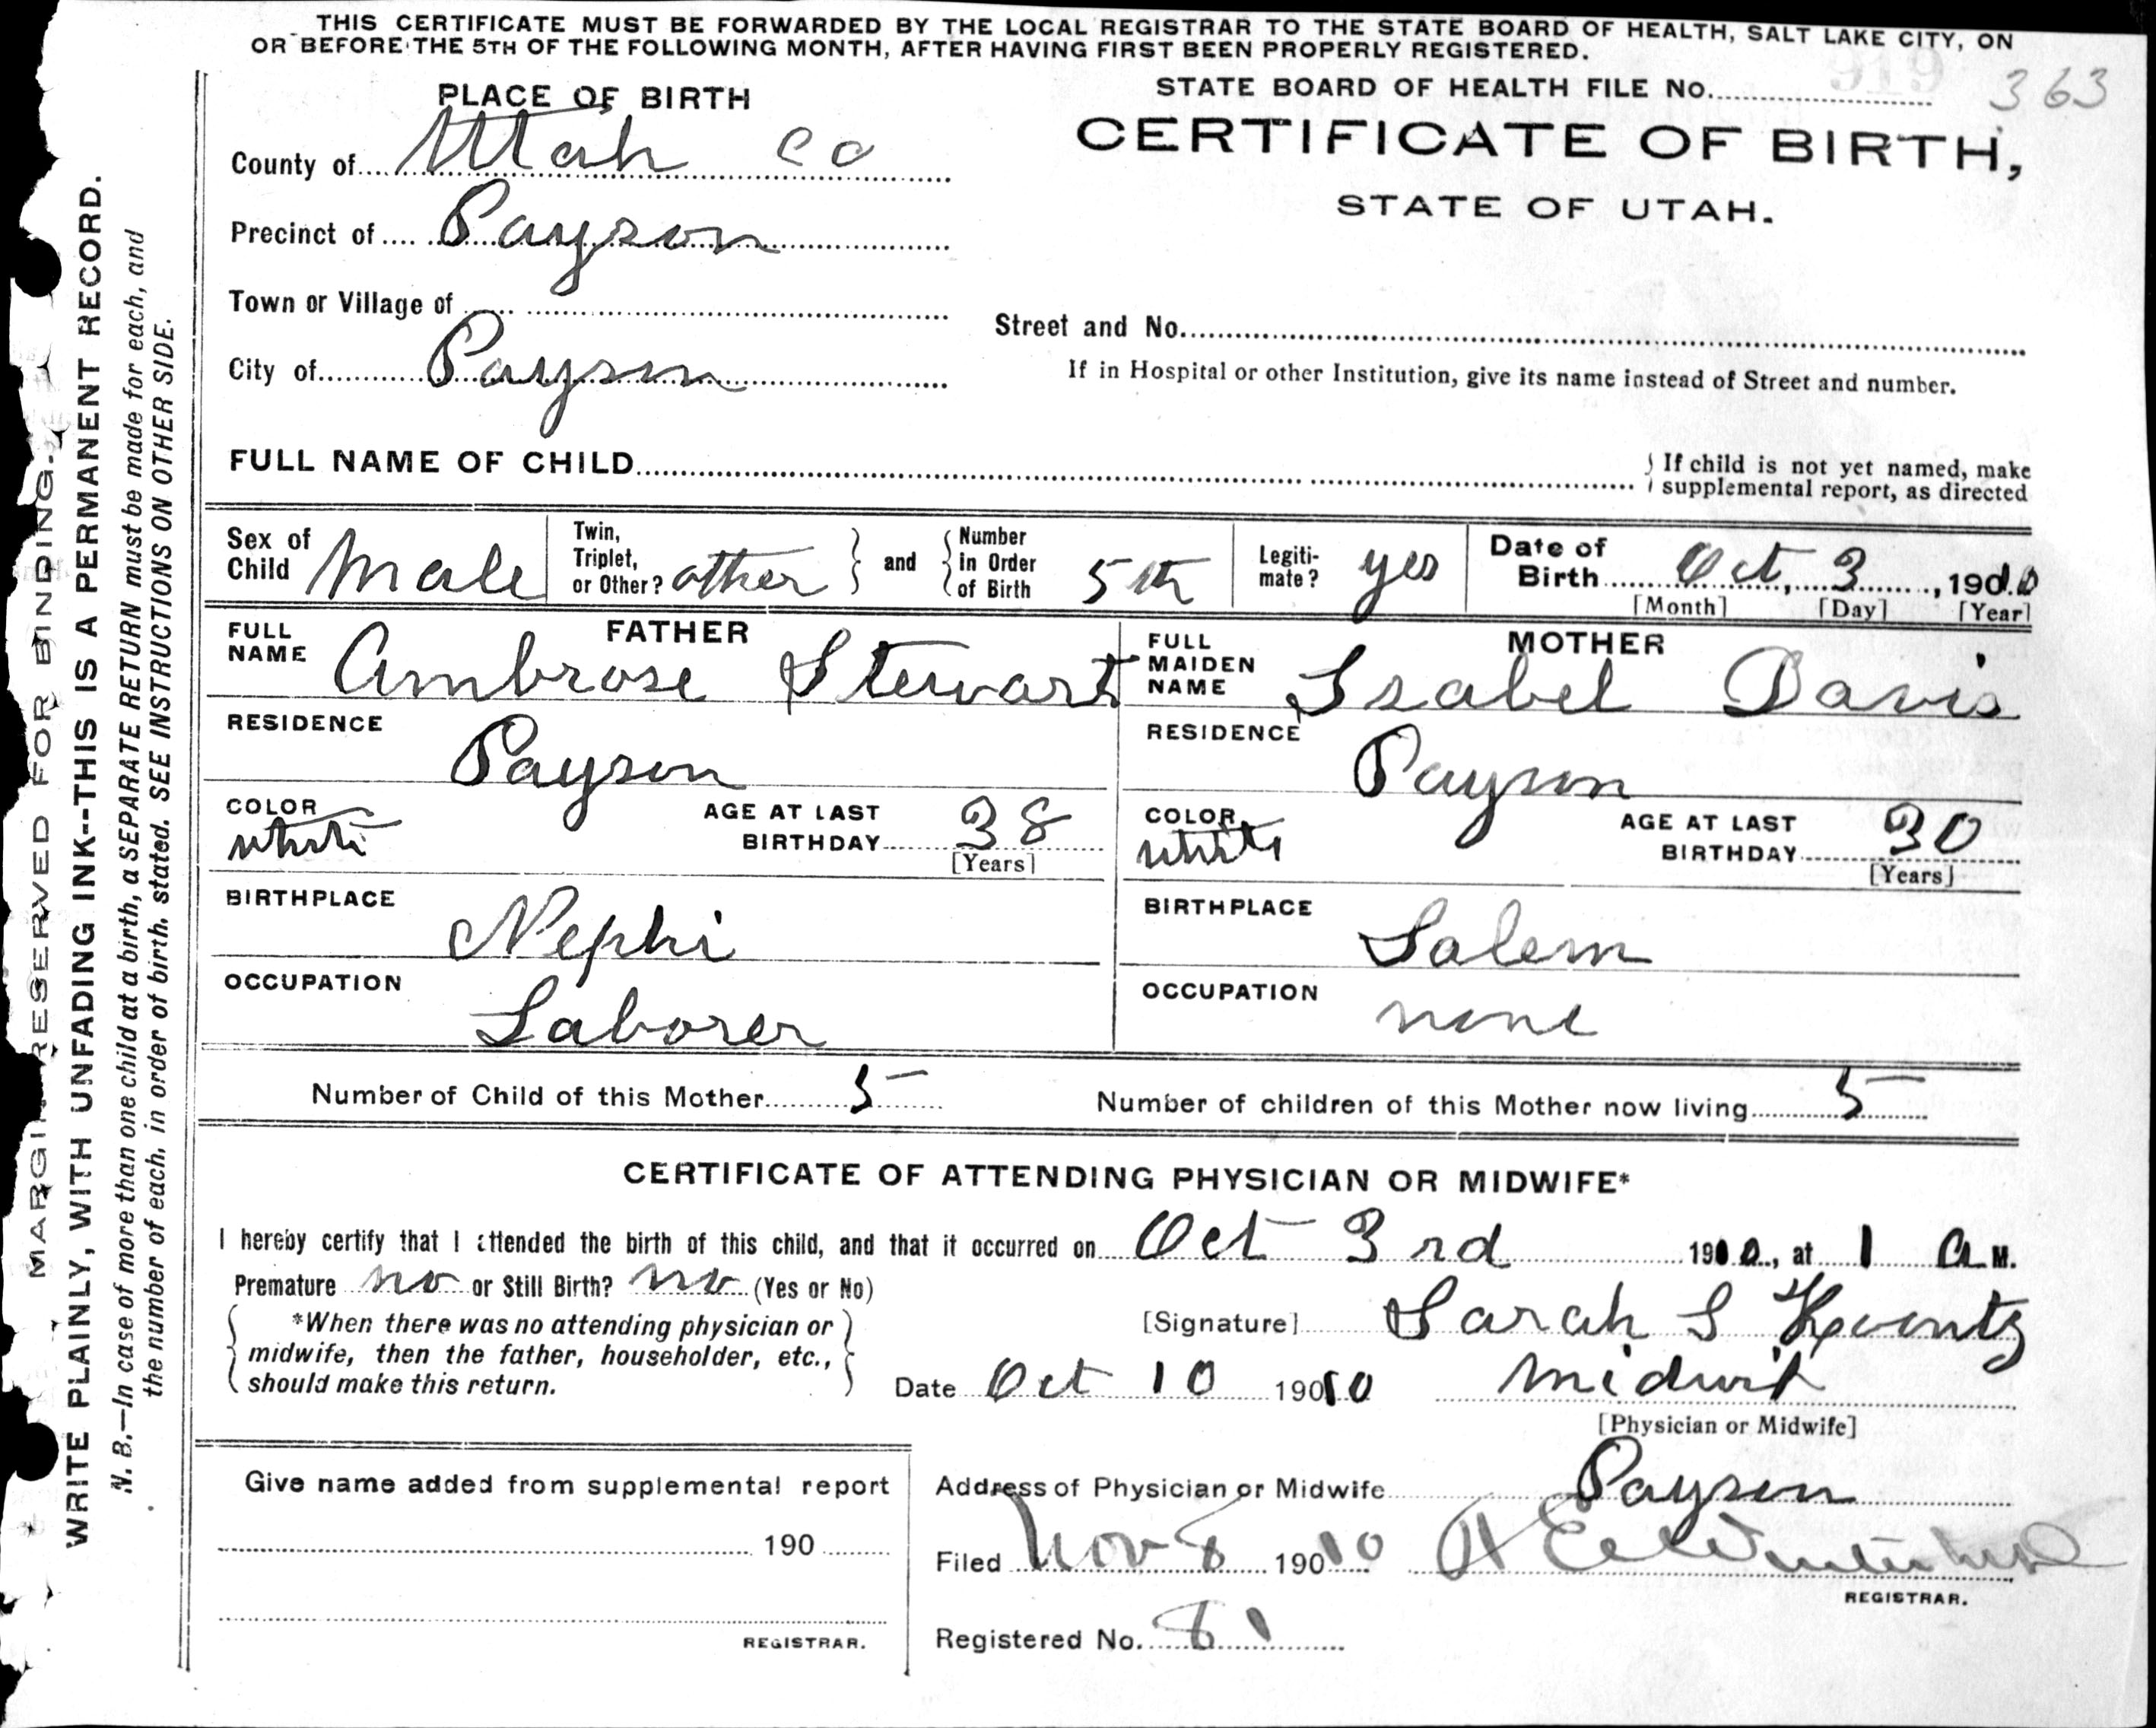 THIS CERTIFICATE MUST BE FORWARDED BY THE LOCAL REGISTRAR TO THE STATE BOARD OF HEALTH, SALT LAKE CITY, ON
OR BEFORE THE 5TH OF THE FOLLOWING MONTH, AFTER HAVING FIRST BEEN PROPERLY REGISTERED.
PLACE OF BIRTH
STATE BOARD OF HEALTH FILE No. 919 363
CERTIFICATE OF BIRTH,
STATE OF UTAH.
County of Utah Co
Precinct of Payson
Town or Village of
Street and No.
City of Payson
If in Hospital or other Institution, give its name instead of Street and number.
FULL NAME OF CHILD
If child is not yet named, make
supplemental report, as directed
Sex of Child Male
Twin, Triplet, or Other? other and Number in Order of Birth 5th
Legitimate? yes
Date of Birth Oct, 3, 1910
[Month] [Day] [Year]
FATHER
FULL NAME Ambrose Stewart
MOTHER
FULL MAIDEN NAME Isabel Davis
RESIDENCE Payson
RESIDENCE Payson
COLOR white AGE AT LAST BIRTHDAY 38 [Years]
COLOR white AGE AT LAST BIRTHDAY 30 [Years]
BIRTHPLACE Nephi
BIRTHPLACE Salem
OCCUPATION Laborer
OCCUPATION none
Number of Child of this Mother 5 Number of children of this Mother now living 5
CERTIFICATE OF ATTENDING PHYSICIAN OR MIDWIFE*
I hereby certify that I attended the birth of this child, and that it occurred on Oct 3rd 1910, at 1 A M.
Premature no or Still Birth? no (Yes or No)
*When there was no attending physician or
midwife, then the father, householder, etc.,
should make this return.
[Signature] Sarah S Koontz
Date Oct 10 19010 midwif
[Physician or Midwife]
Give name added from supplemental report
190
REGISTRAR.
Address of Physician or Midwife Payson
Filed Nov 8 19010 H E
REGISTRAR.
Registered No. 81
MARGIN RESERVED FOR BINDING.
WRITE PLAINLY, WITH UNFADING INK--THIS IS A PERMANENT RECORD.
N. B.—In case of more than one child at a birth, a SEPARATE RETURN must be made for each, and
the number of each, in order of birth, stated. SEE INSTRUCTIONS ON OTHER SIDE.